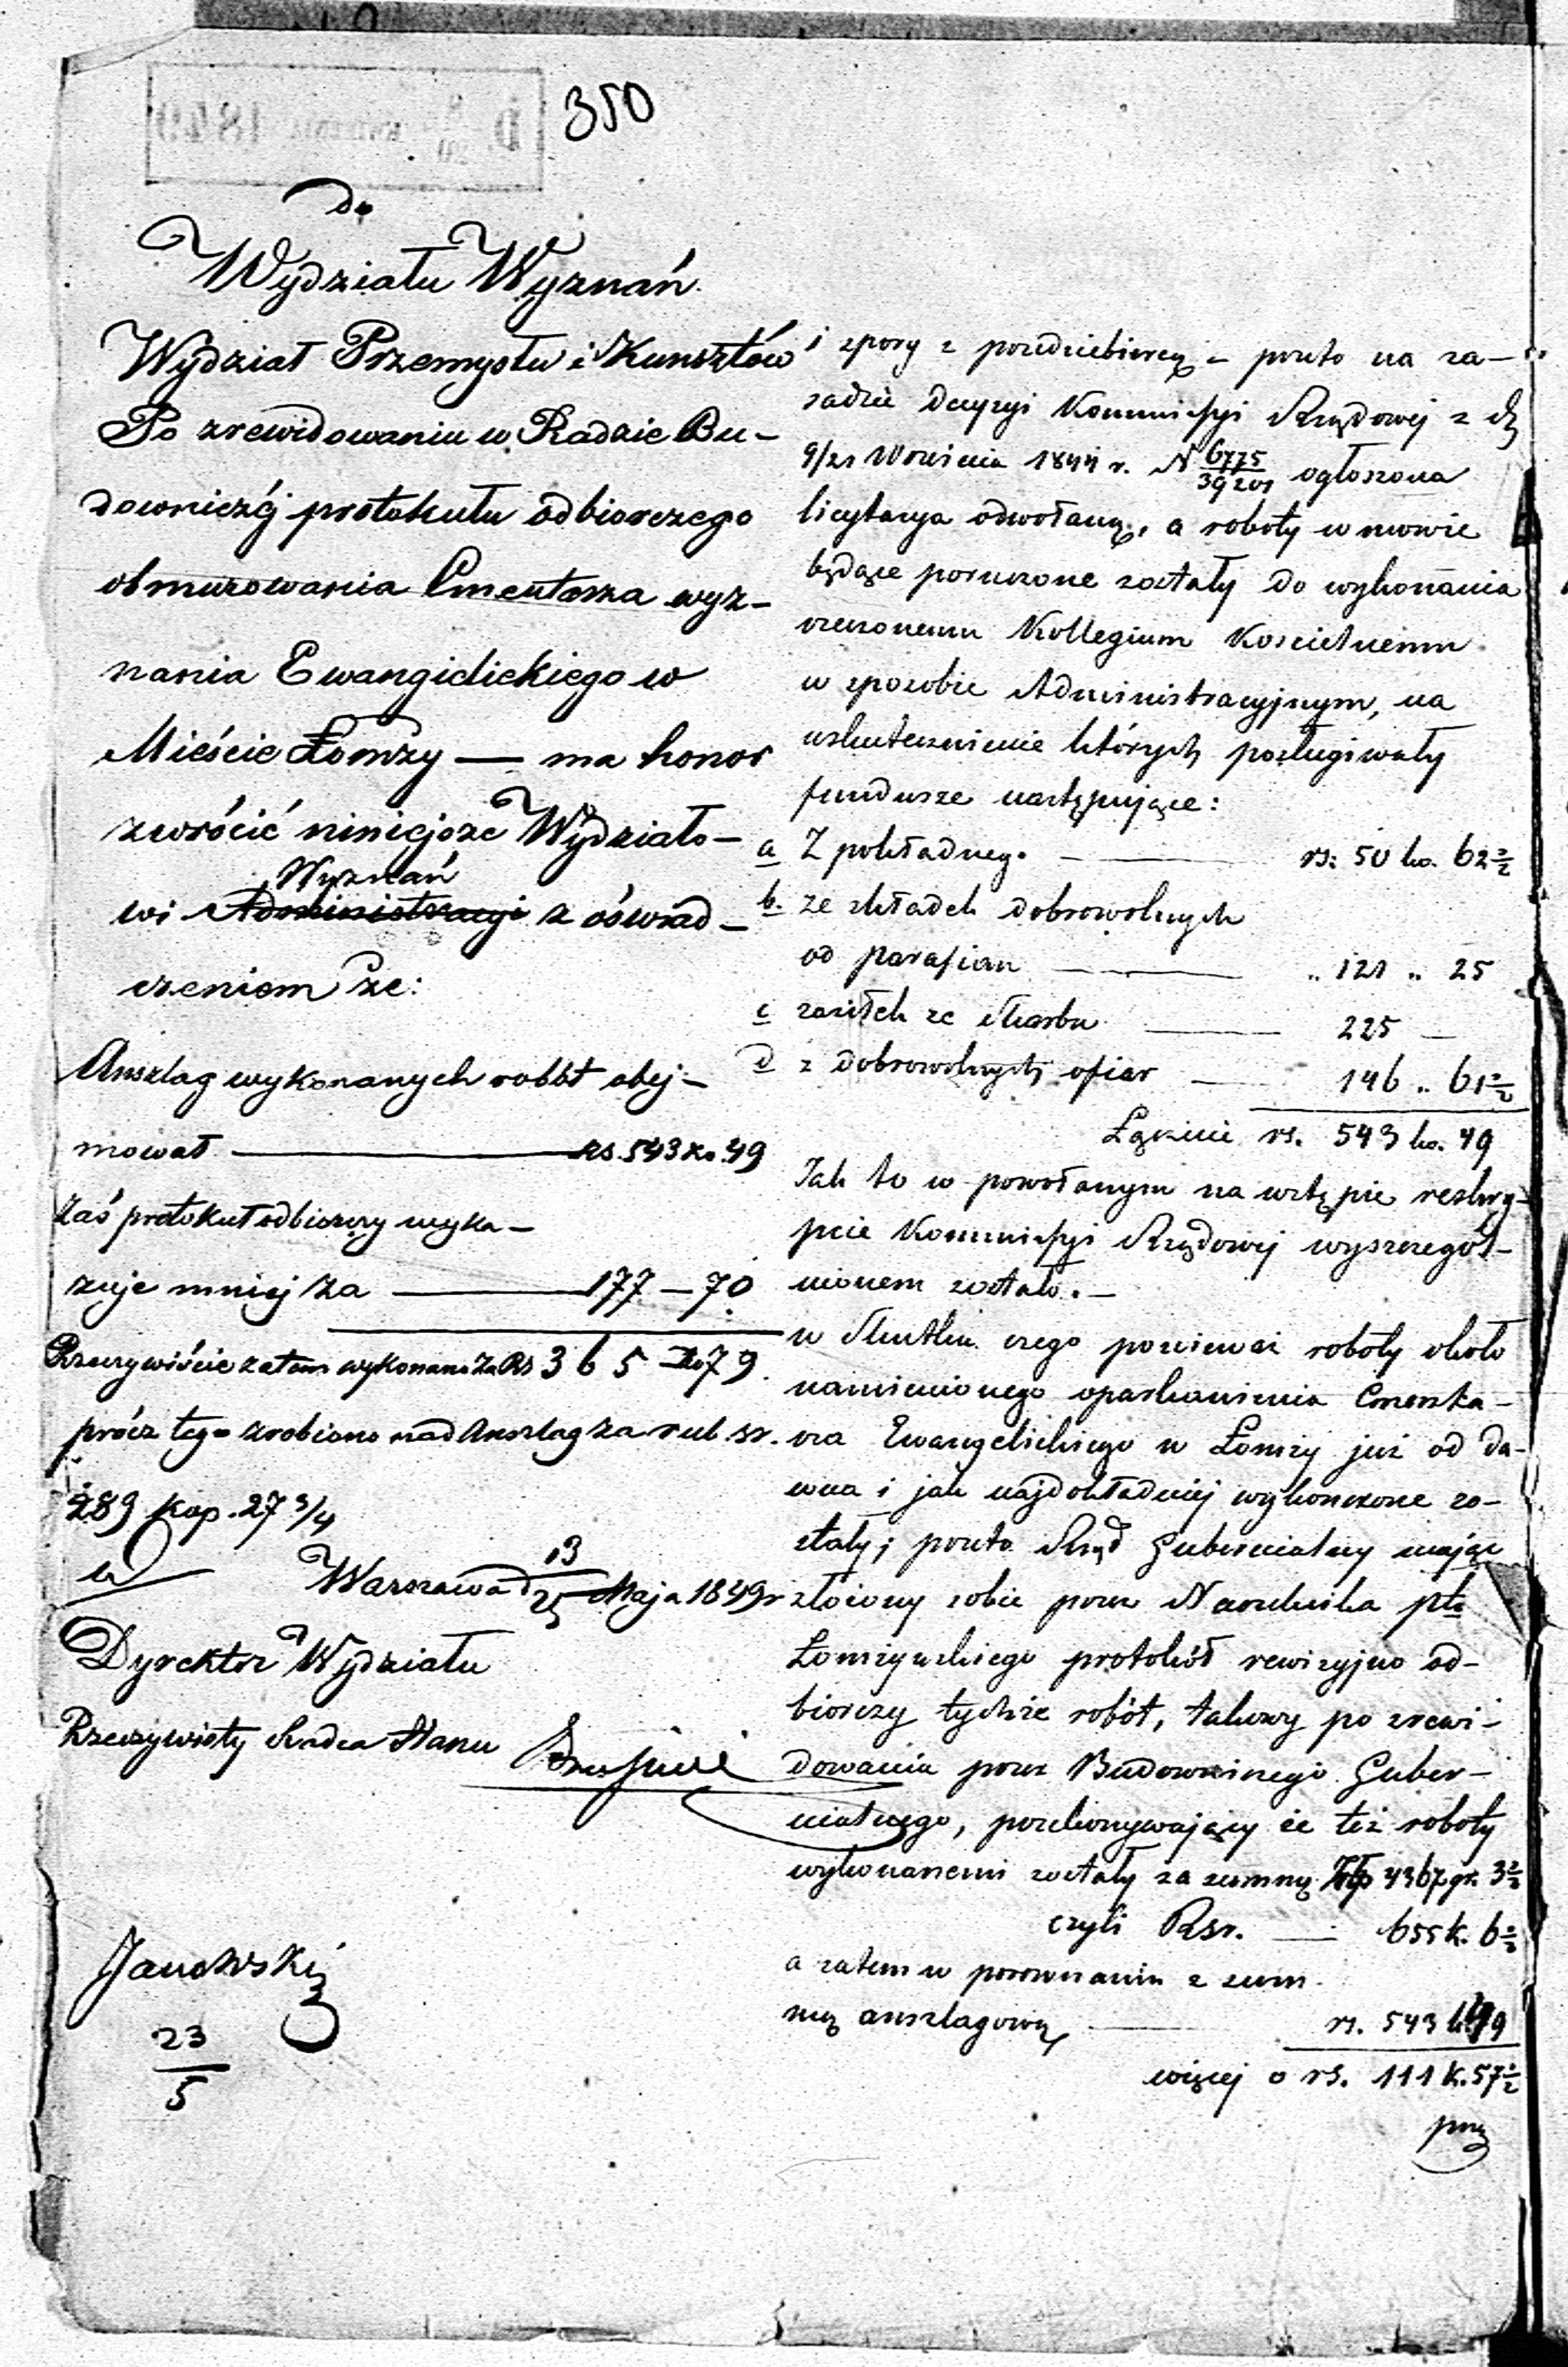 350
Do
Wydziału Wyznań
Wydział Przemysłu i Kunsztów
Po zrewidowaniu w Radzie Bu-
downiczéj protokułu odbiorczego
obmurowania Cmentarza wyz-
nania Ewangielickiego w
Mieście Łomży — ma honor
zwrócić niniejsze Wydziało-
Wyznań
wi Administracyi z oświad-
czeniem że:
Anszlag wykonanych robót obej-
mował — rs. 543 ko. 49
Zaś protokuł odbiorczy wyka-
zuje mniej za — 177 — 70
Rzeczywiście zatem wykonano za Rs 365 ko 79
prócz tego zrobiono nad Anszlag za rub. sr.
289 kop. 27 3/4
Warszawa d 13/25 Maja 1849 r
Dyrektor Wydziału
Rzeczywisty Radca Stanu
Janowski
23
5
i spory z przedsiębiercą – przeto na za-
sadzie decyzyi Kommissyi Rządowej z d.
9/21 Września 1844 r. N 6775/39201 ogłoszona
licytacya odwołaną, a roboty w mowie
będące poruczone zostały do wykonania
rzeczonemu Kollegium Kościelnemu
w sposobie Administracyjnym, na
uskutecznienie których posługiwały
fundusze następujące:
a Z pokładnego — rs: 50 ko. 62 ½
b. ze składek dobrowolnych
od parafian — „ 121 „ 25
c zasiłek ze Skarbu — 225 —
d z dobrowolnych ofiar — 146 „ 61 ½
Łącznie rs. 543 ko. 49
Jak to w powołanym na wstępie reskry-
pcie Kommissyi Rządowej wyszczegól-
nionem zostało. —
w Skutku czego ponieważ roboty około
namienionego oparkanienia Cmenta-
rza Ewangelickiego w Łomży już od da-
wna i jak najdokładniej wykończone zo-
stały; przeto Rząd Gubernialny mając
złożony sobie przez Naczelnika ptu
Łomżyńskiego protokół rewizyjno od-
biorczy tychże robót, takowy po zrewi-
dowaniu przez Budowniczego Guber-
nialnego, przekonywający że też roboty
wykonanemi zostały za summę Złp 4367 gr. 3 ½
czyli Rsr. — 655 k. 6 ½
a zatem w porównaniu z sum-
mą anszlagową — rs. 543 k. 49
więcej o rs. 111 k. 57 ½